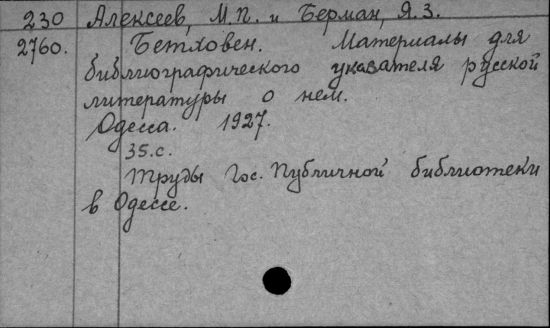 230 Алексеев, М.П. и Берман, Я.З.
2760. Бетховен. Материалы для
библиографического указателя русской
литературы о нем.
Одесса. 1927.
35.с.
Труды Гос. Публичной библиотеки
в Одессе.